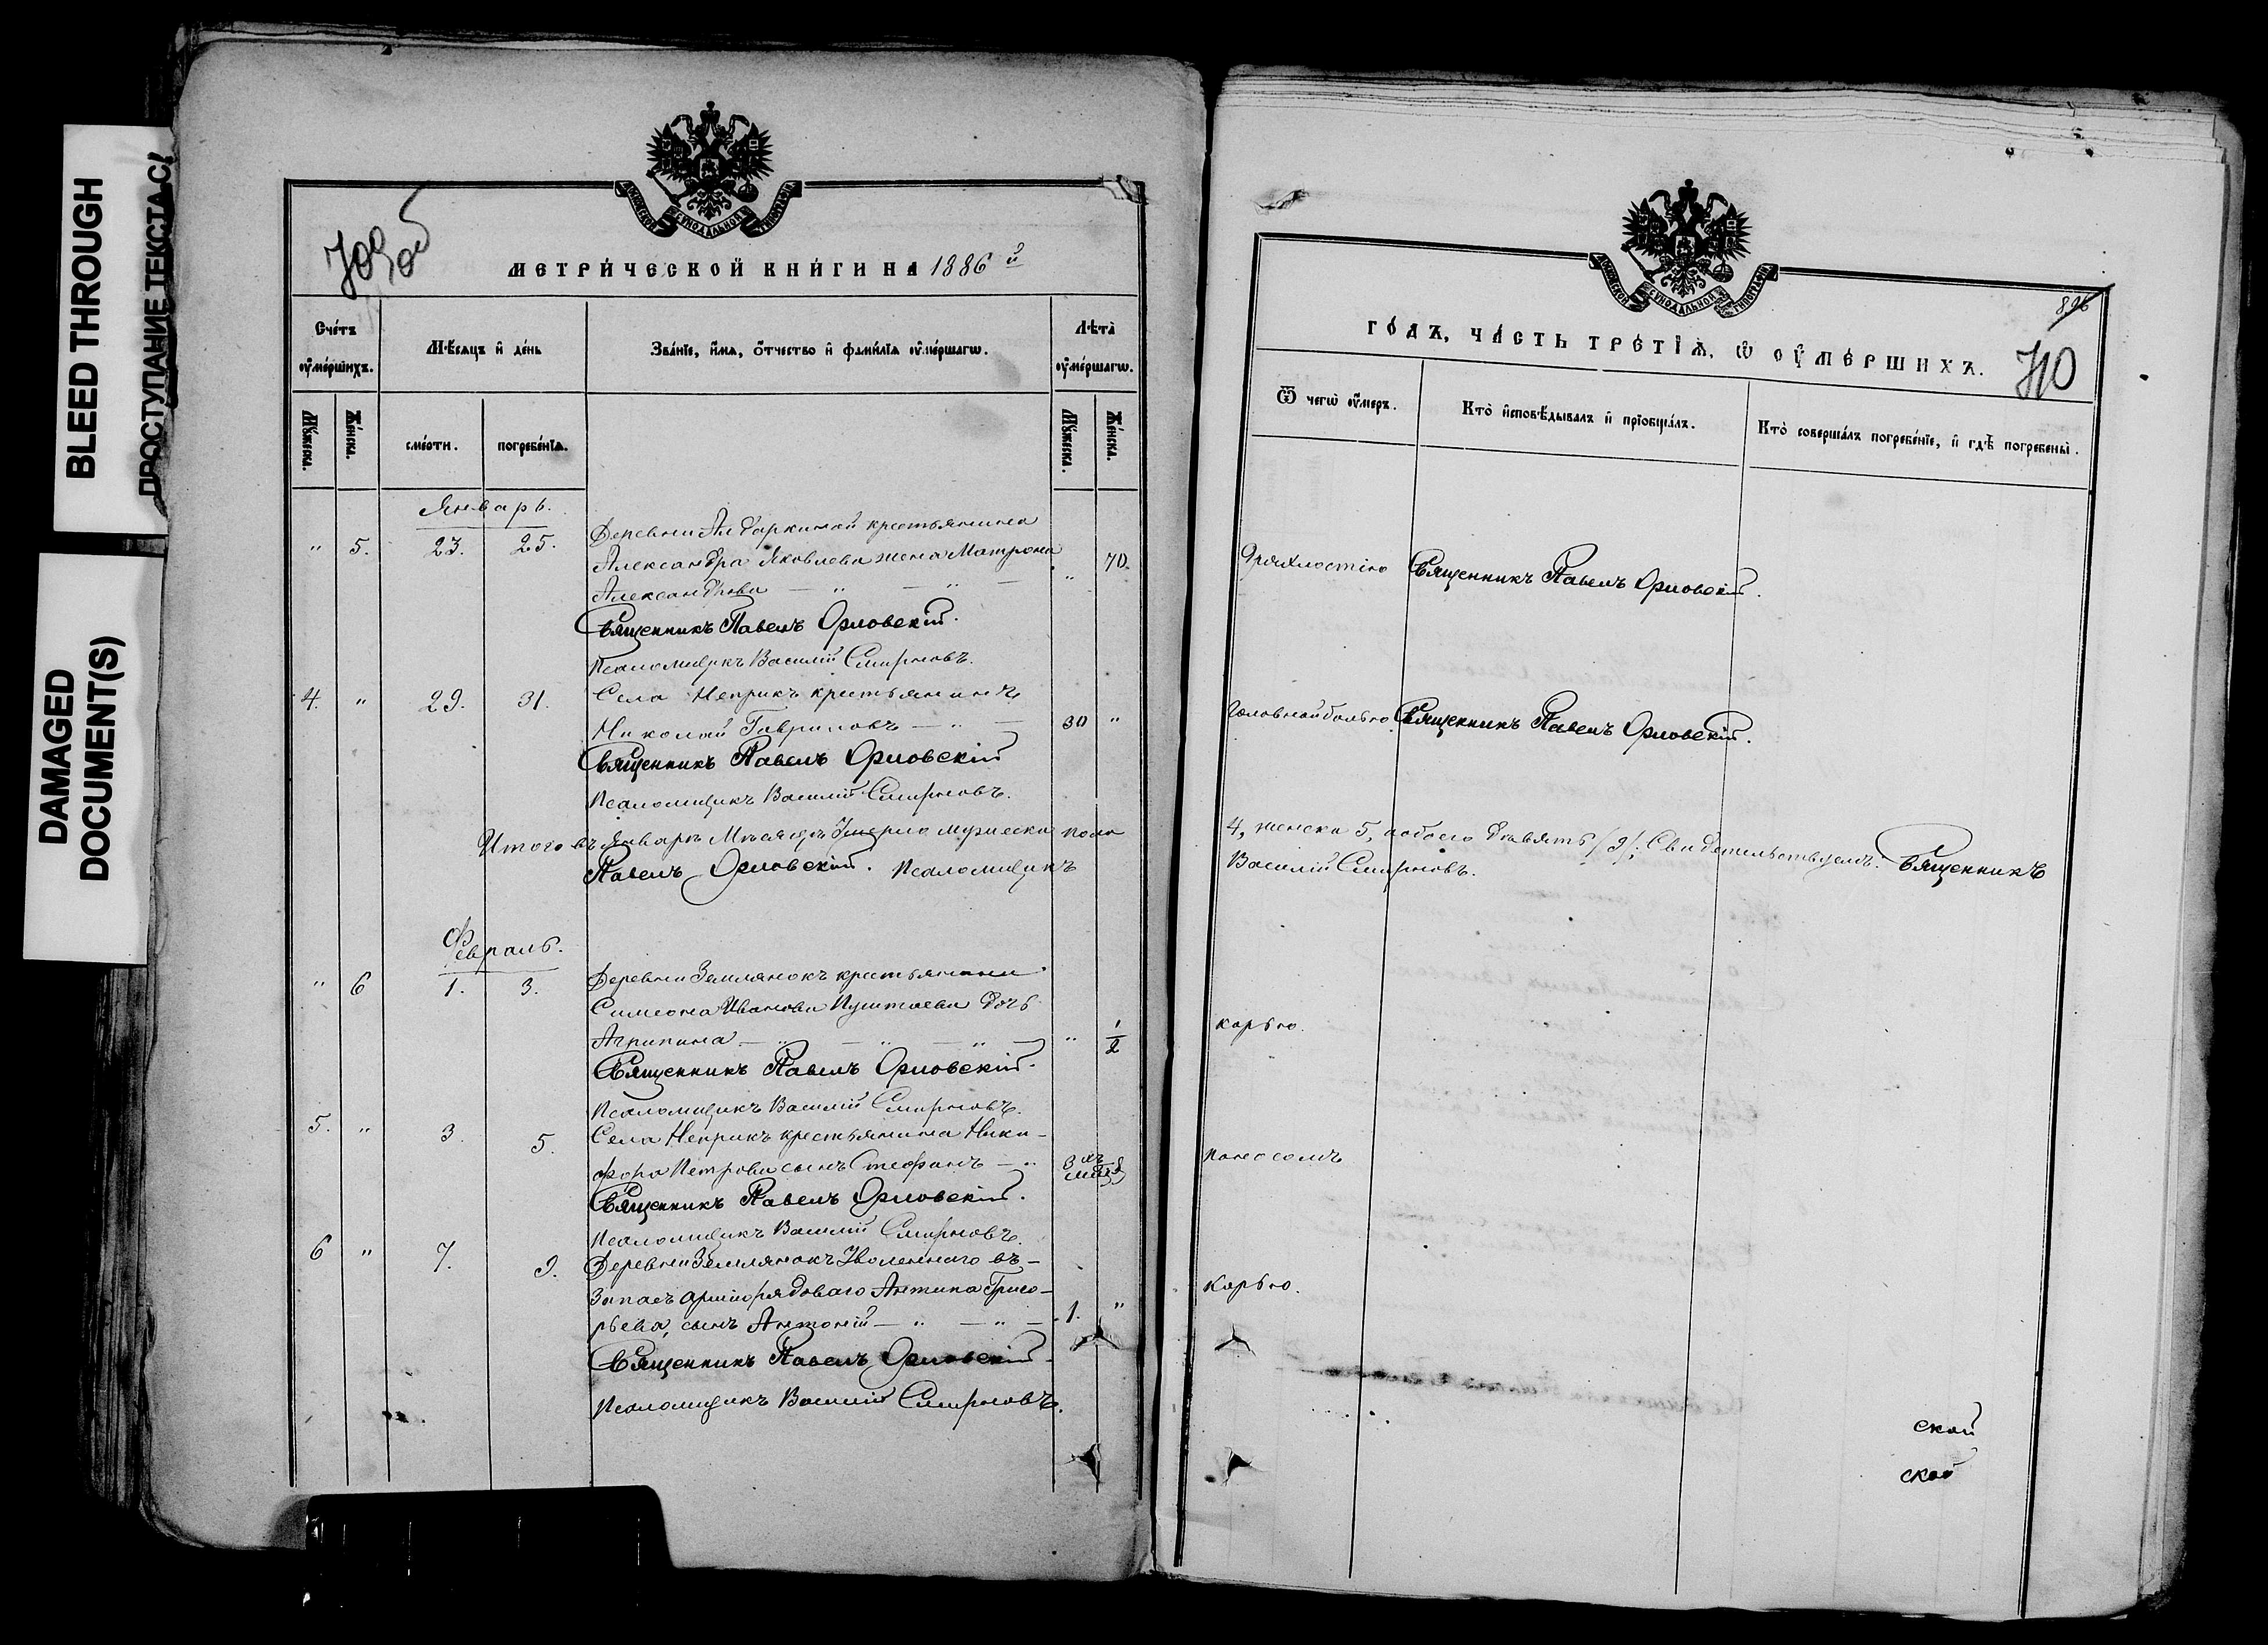 BLEED THROUGH
ПРОСТУПАНИЕ ТЕКСТА С/
DAMAGED
DOCUMENT(S)
МОСКОВСКОЙ СѴНОДАЛЬНОЙ ТИПОГРАФІИ
709 об
МЕТРИ́ЧЕСКОЙ КНИ́ГИ НА 1886 й
Сче́тъ ᲂу҆ме́ршихъ.
Мѣ́сяцъ и҆ де́нь
Зва́нїе, и҆́мѧ, ѻ҆́тчество и҆ фами́лїѧ ᲂу҆ме́ршагѡ.
Лѣ́та ᲂу҆ме́ршагѡ.
Мꙋ́жеска.
Же́нска.
сме́рти.
погребе́нїѧ.
Мꙋ́жеска.
Же́нска.
Январь.
" 5. 23. 25. Деревни крестьянина
Александра Яковлева жена Матрона " 70.
Александрова — " — " —
Священникъ Павелъ Орловскій.
Псаломщикъ Василій Смирновъ.
4. " 29. 31. Села Неприкъ крестьянинъ
Николай Гавриловъ — " — 30 "
Священникъ Павелъ Орловскій
Псаломщикъ Василій Смирновъ.
Итого въ Январѣ Мѣсяцѣ Умерло мужеска пола
Павелъ Орловскій. Псаломщикъ
Февраль.
" 6 1. 3. Деревни Землянокъ крестьянина
Симеона Иванова Пуштаева дочь
Агрипина — " — " — " — " 1/2
Священникъ Павелъ Орловскій.
Псаломщикъ Василій Смирновъ.
5. " 3. 5. Села Неприкъ крестьянина Ники-
фора Петрова сынъ Стефанъ — " 3 хъ
Священникъ Павелъ Орловскій.
Псаломщикъ Василій Смирновъ.
6 " 7. 9. Деревни Землянокъ Уволеннаго въ-
Запасъ арміи рядоваго Антипа Григо-
рьева, сынъ Антоній — " — " — 1. "
Священникъ Павелъ Орловскій.
Псаломщикъ Василій Смирновъ.
МОСКОВСКОЙ СѴНОДАЛЬНОЙ ТИПОГРАФІИ
896
ГО́ДЪ, ЧА́СТЬ ТРЕ́ТЇѦ, Ѡ҆ ᲂУ҆МЕ́РШИХЪ.
710
Ѿ чегѡ̀ ᲂу҆́меръ.
Кто̀ и҆сповѣ́дывалъ и҆ прїобща́лъ.
Кто̀ соверша́лъ погребе́нїе, и҆ гдѣ̀ погребены̀.
Дряхлостію Священникъ Павелъ Орловскій.
Головной болью Священникъ Павелъ Орловскій.
4, женска 5, обоего девять /9/; Свидетельствуемъ: Священникъ
Василій Смирновъ.
Корью.
Поносомъ
Корью.
ской
ской